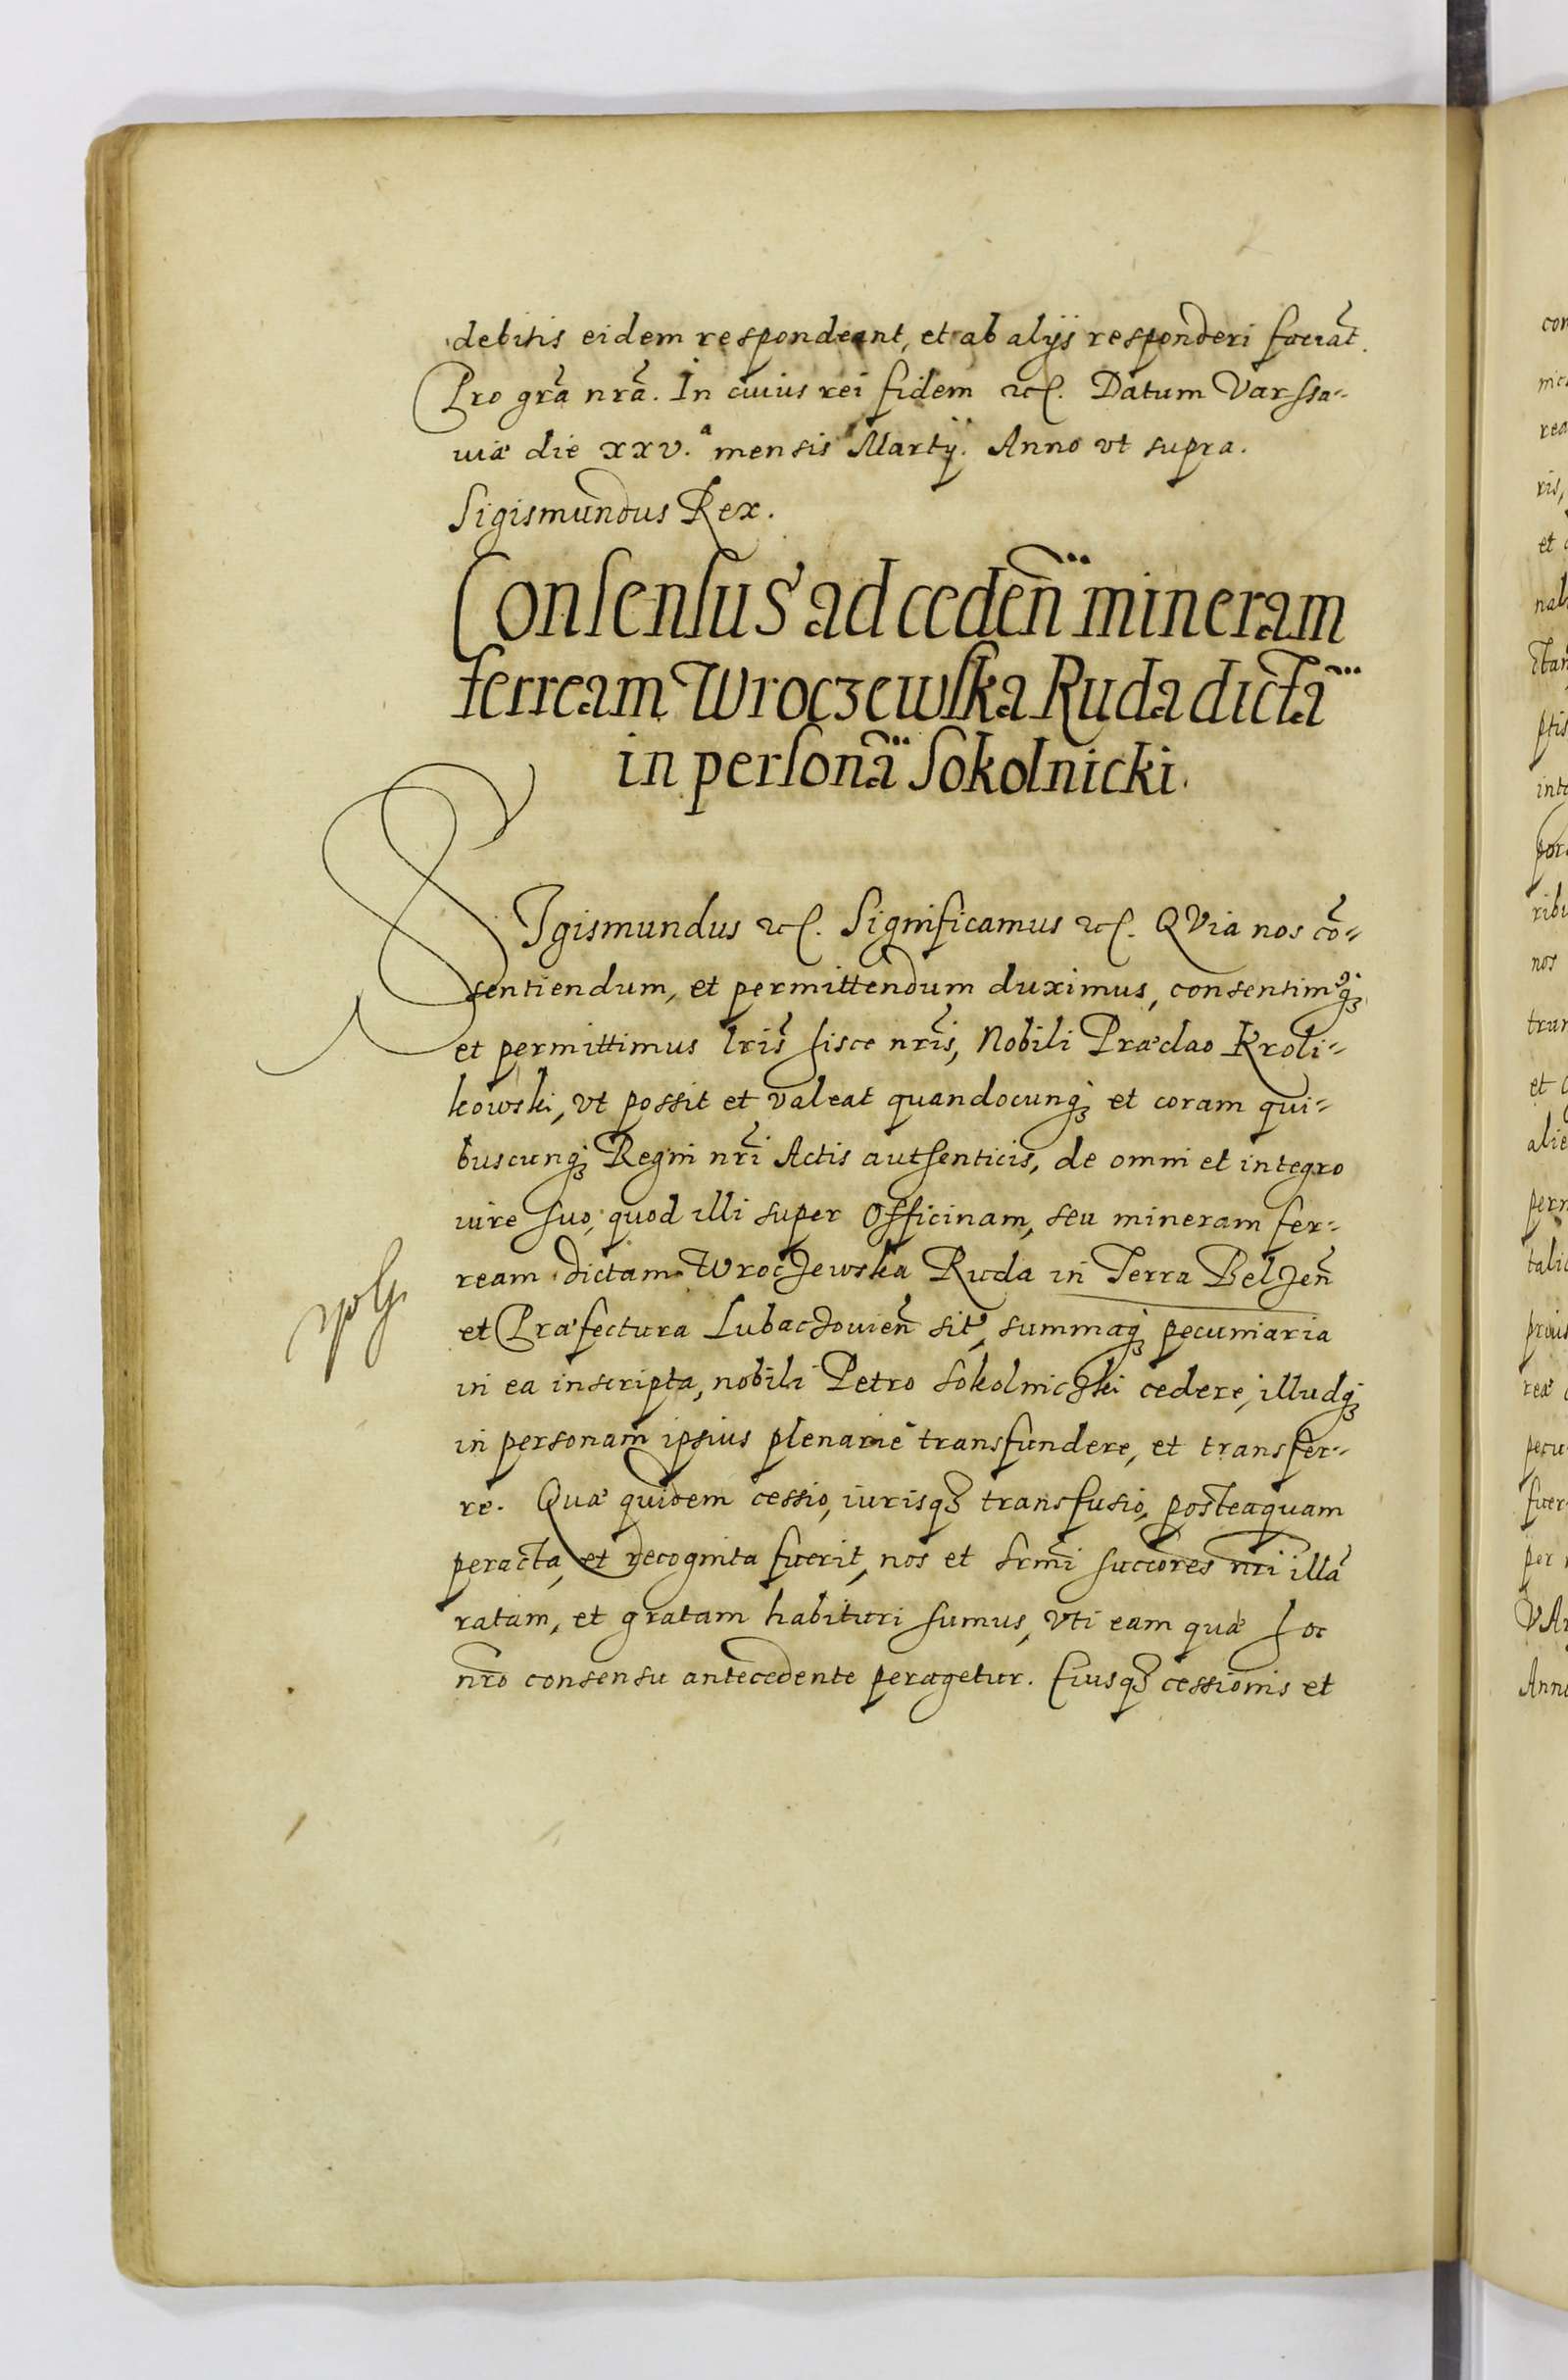 debitis eidem respondeant, et ab alijs responderi faciāt.
Pro grā nrā. In cuius rei fidem etc. Datum Varssa-
uiæ die xxv.ª mensis Martij. Anno vt supra.
Sigismundus Rex.
Consensus ad cedeñ mineram
ferream Wroczewska Ruda dictā
in personā Sokolnicki.
SIgismundus etc. Significamus etc. QVia nos cō-
sentiendum, et permittendum duximus, consentimꝰq́ꝫ
et permittimus lris̄ hisce nris̄, Nobili Præclao Kroli-
kowski, vt possit et valeat quandocunq́ꝫ et coram qui-
buscunq́ꝫ Regni nrī Actis authenticis, de omni et integro
iure suo, quod illi super Officinam, seu mineram fer-
ream dictam Wroczewska Ruda in Terra Belzeñ
et Præfectura Lubaczouieñ sit, summaq́ꝫ pecuniaria
in ea inscripta, nobili Petro Sokolniczki cedere, illudq́ꝫ
in personam ipsius plenarie transfundere, et transfer-
re. Quæ quidem cessio, iurisqꝫ transfusio, posteaquam
peracta, et recognita fuerit, nos et Srmī succores nrī illā
ratam, et gratam habituri sumus, vti eam quæ hoc
nr̄o consensu antecedente peragetur. Eiusqꝫ cessionis et